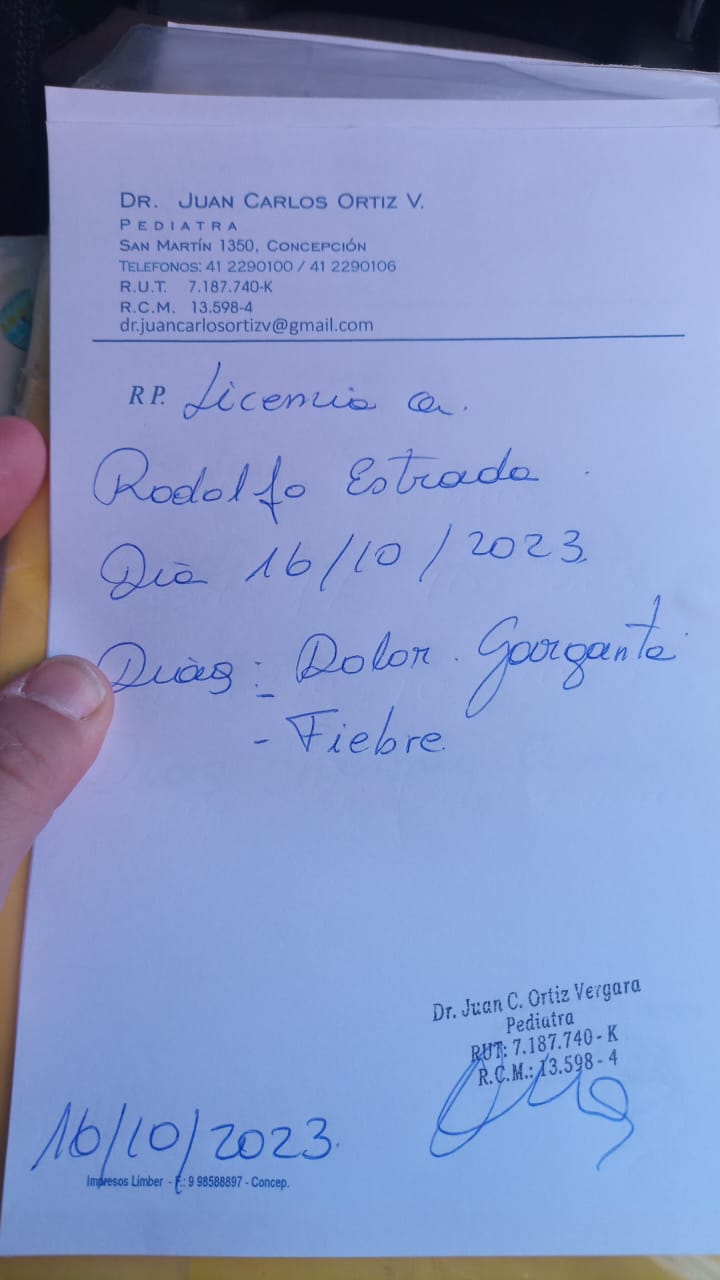 DR. JUAN CARLOS ORTIZ V.
PEDIATRA
SAN MARTÍN 1350, CONCEPCIÓN
TELEFONOS: 41 2290100 / 41 2290106
R.U.T. 7.187.740-K
R.C.M. 13.598-4
dr.juancarlosortizv@gmail.com
RP. Licencia a.
Rodolfo Estrada
Dia 16/10/2023
Diag: Dolor Garganta
- Fiebre
Dr. Juan C. Ortiz Vergara
Pediatra
RUT: 7.187.740 - K
R.C.M.: 13.598 - 4
16/10/2023
Impresos Limber - F.: 9 98588897 - Concep.